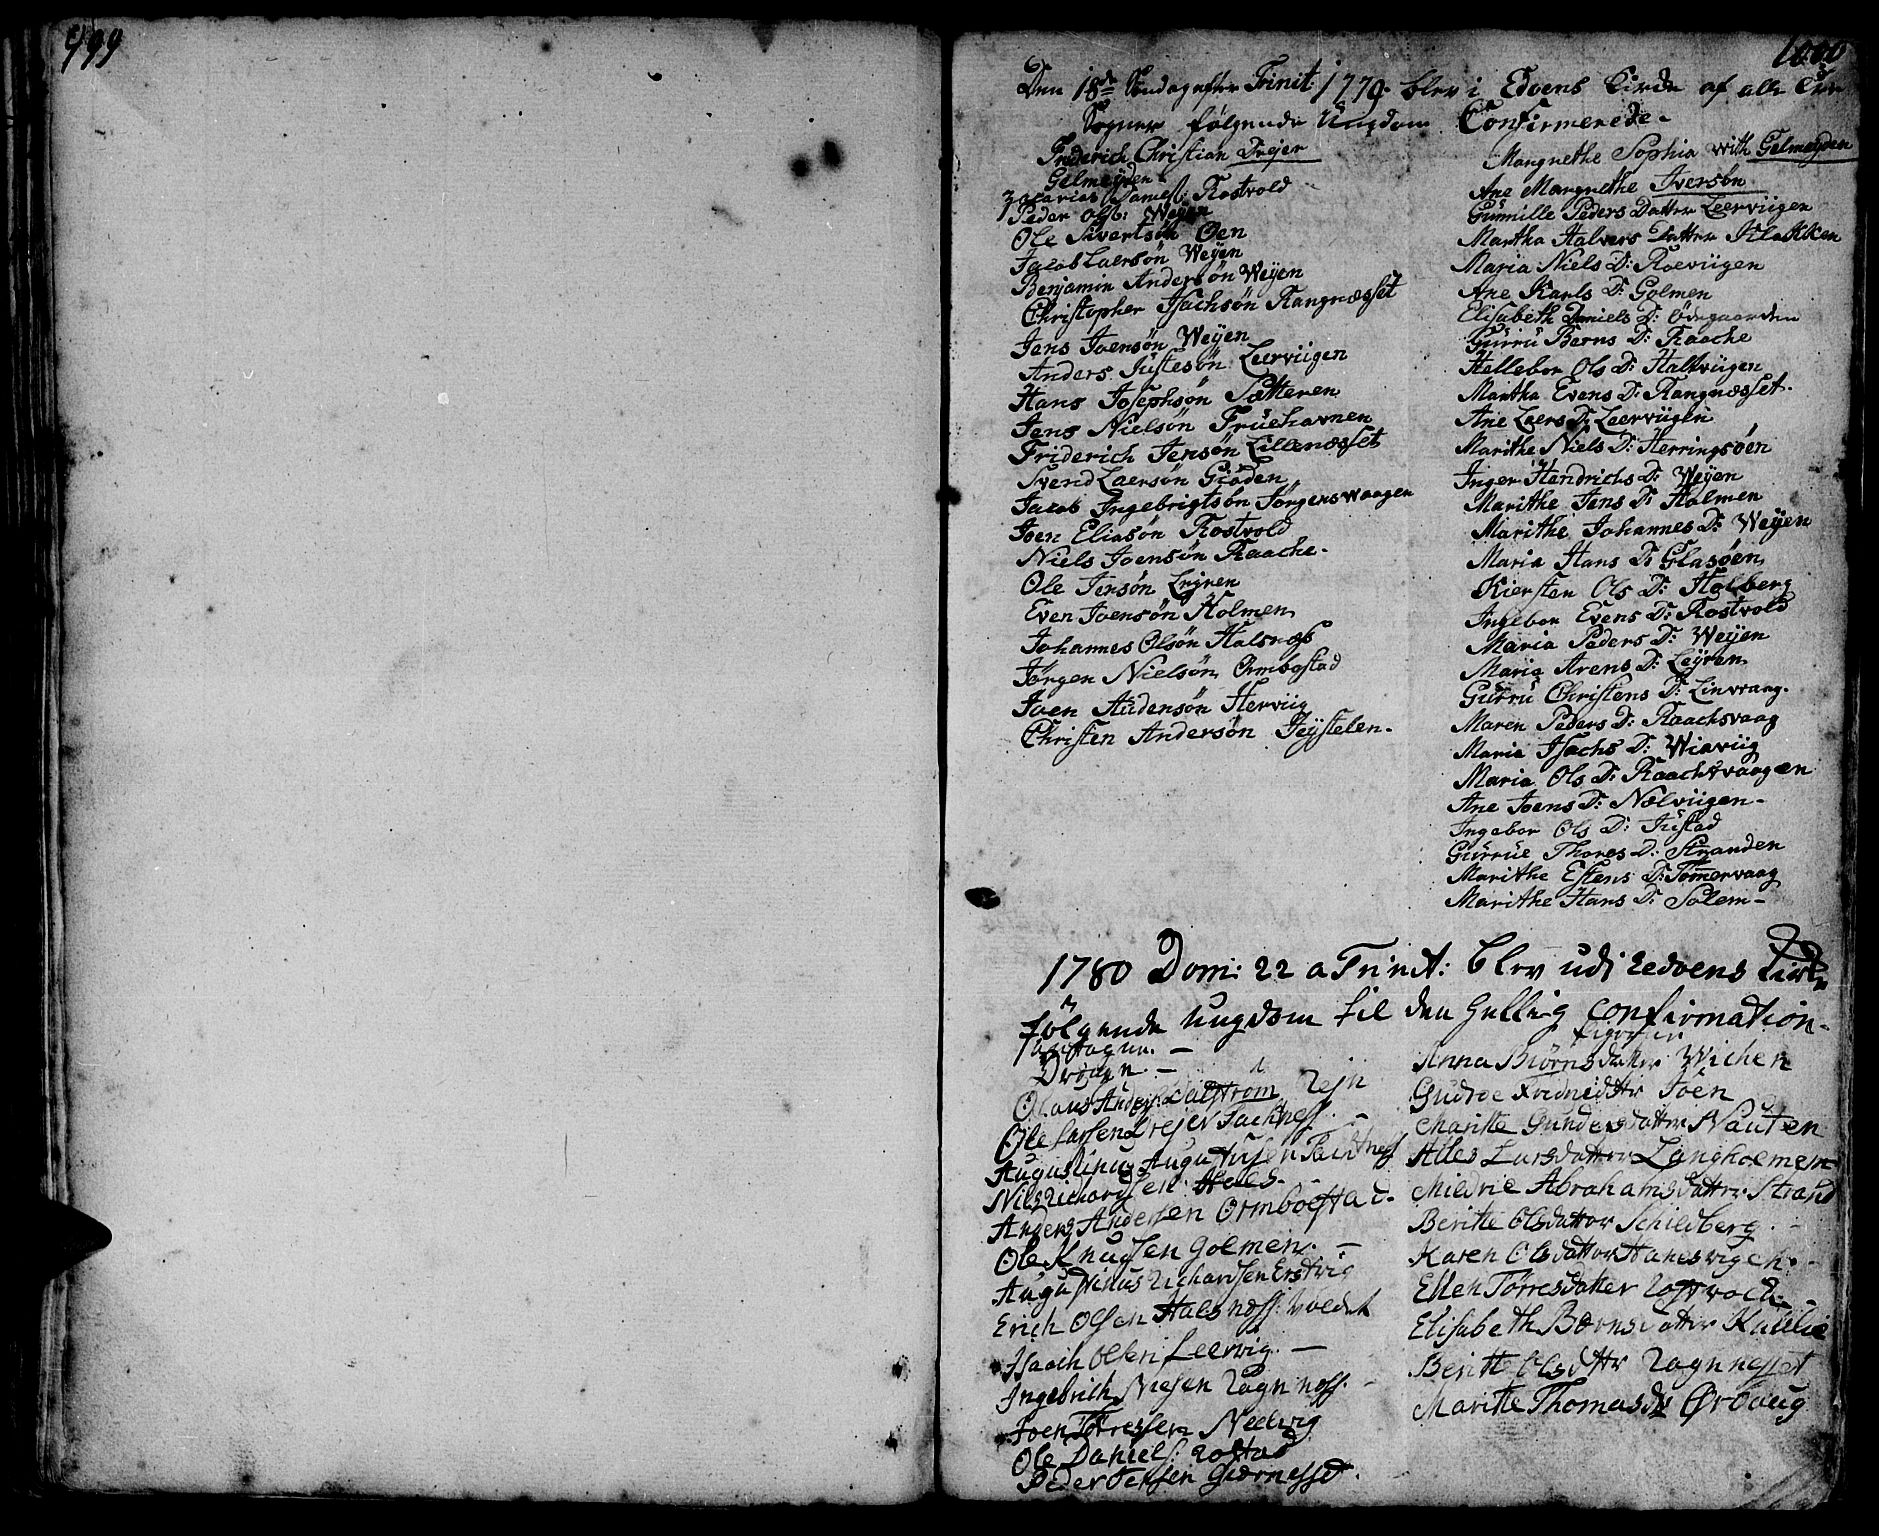 999
1000
Den 18de Søndag efter Trinit: 1779 blev i Edøens Kirke af alle
Sogner følgende Ungdom Confirmerede-
Friderich Christian Drejer
Gelmeyden
Zacarias Daniels: Rostvold
Peder Ols: Weyen
Ole Sivertsøn Øen
Jacob Laersøn Weyen
Benjamin Andersøn Weyen
Christopher Isachsøn Rangnæsset
Jens Joensøn Weyen
Anders Justesøn Leerviigen
Hans Josephsøn Sætteren
Jens Nielsøn Fruehavnen
Friderich Jensøn Lillenæsset
Svend Laersøn Gioden
Jacob Ingebrigtsøn Jørgenswaagen
Joen Eliasøn Rostvold
Niels Joensøn Raache.
Ole Jensøn Leyren
Even Joensøn Holmen
Johannes Olsøn Halsnæs
Jørgen Nielsøn Ormbostad
Joen Audensøn Herviig
Christen Andersøn Jeystelen.
Mangrethe Sophia With Gelmeyden
Ane Margrethe Iversøn
Gunnille Peders Datter Leerviigen
Martha Halvors Datter Klakken
Maria Niels D: Roeviigen
Ane Karls D: Golmen
Elisabeth Daniels D: Ødegaarden
Gurru Berns D: Raache
Hellebor Ols D: Haltviigen
Maritha Evens D: Rangnæsset.
Ane Laers D: Leerviigen
Marithe Niels D: Herringsøen
Inger Hendrichs D: Weyen
Marithe Jens D: Holmen
Marithe Johannes D: Weyen
Maria Hans D: Glasøen
Kiersten Ols D: Holberg
Ingebor Evens D: Rostvold
Maria Peders D: Weyen
Maria Arens D: Leyren
Gurru Christens D: Linvaag.
Maren Peders D: Raachsvaag
Maria Isachs D: Wiaviig
Maria Ols D: Raachsvaagen
Ane Joens D: Nolviigen-
Ingebor Ols D: Justad
Gurrue Thores D: Stranden
Marithe Estens D: Tømmervaag
Marithe Hans D: Solem-
1780 Dom: 22 a Trinit: blev udi Eedøens Kirke
følgende Ungdom til den hellig Confirmation
antagne. -
Drenge. -
Piger
Olaus Anders: Dalstrøm Rejn
Ole Larsen Drejer
Augustinus Augustusen
Nils Richardsen Hals.
Anders Andersen Ormboestad.
Ole Knudsen Golmen. -
Augustinus Richardsen Ertsvig
Erich Olsen Halsnæss: voldet
Isach Olsen Leervig. -
Ingebrich Nielsen Ragnness.
Joen Torressen Nedvig
Ole Daniels: Rostad
Peder Jensen Giernesset.
Anna Biørnsdatter Wichen
Gudroe
Maritte Gundersdatter Nausten
Alles Larsdatter Langholmem
Mildrie Abrahamsdatter Strand
Beritte Olsdatter Schildberg. -
Karen Olsdatter Hanesvigen. -
Ellen Torresdatter
Elisabeth Bernsdatter
Beritte Olsdatter Ragnnesset
Maritte Thomasdr Ørdvaug